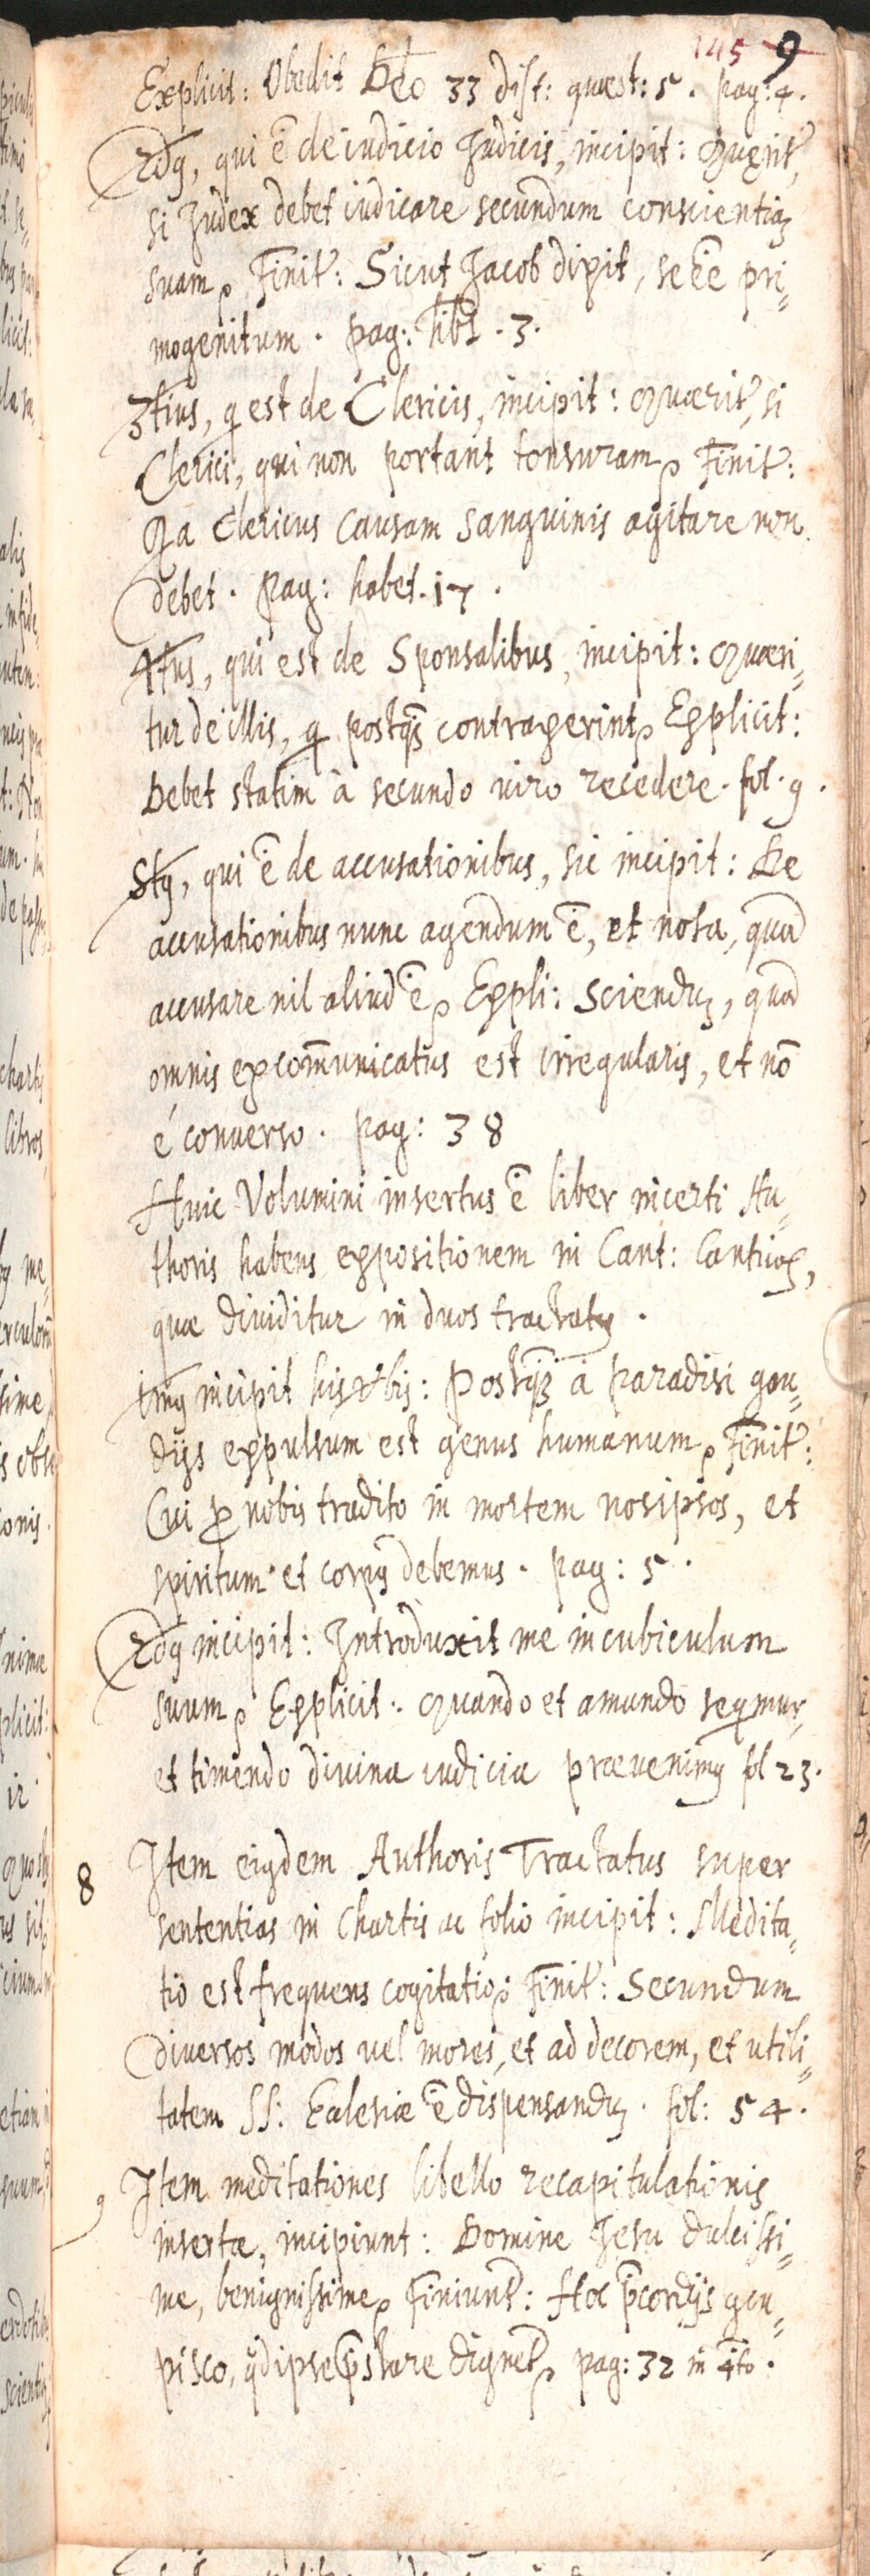 145 9
Explicit: Obedit Deo 33 dist: quæst: 5. pag: 4.
2dꝰ, qui ē de iudicio Judicis, incipit: Quærit̃,
si Judex debet iudicare secundum conscientiaꝫ
suam, Finit̃: Sicut Jacob dixit, se ēe pri,,
mogenitum. pag: hēt. 3.
3tius, q̃ est de Clericis, incipit: Quærit̃, si
Clerici, qui non portant tonsuram, Finit̃:
Qa Clericus Causam Sanguinis agitare non
debet. Pag: habet. 17.
4tus, qui est de Sponsalibus, incipit: Quæri,,
tur de illis, q̃ postq̃ꝫ contraxerint, Explicit:
Debet statim à secundo viro recedere. fol. 9.
5tꝰ, qui ē de accusationibus, sic incipit: De
accusationibus nunc agendum ē, et nota, quod
accusare nil aliud ē, Expli: Sciendꝫ, quod
omnis excom̃unicatus est irregularis, et nō
é conuerso. pag: 38
Huic Volumini insertus ē liber incerti Au,,
thoris habens expositionem in Cant: Canticoꝝ,
quæ diuiditur in duos tractatꝰ.
1mꝰ incipit his vbis: Postq̃ꝫ à paradisi gau,,
dijs expulsum est genus humanum, Finit̃:
Cui ꝓ nobis tradito in mortem nosipsos, et
spiritum et corpꝰ debemus. pag: 5.
2dꝰ incipit: Introduxit me in cubiculum
suum, Explicit: Quando et amando seq̃mur,
et timendo diuina iudicia præuenimꝰ fol 23.
8 Item eiꝰdem Authoris Tractatus super
sententias in Chartis ac folio incipit: Medita,,
tio est frequens cogitatio, Finit̃: Secundum
diuersos modos uel mores, et ad decorem, et utili,,
tatem SS: Ecclesiæ ē dispensandꝫ. fol: 54.
9 Item meditationes libello recapitulationis
insertæ, incipiunt: Domine Jesu dulcissi,,
me, benignissime, Finiunt̃: Hoc p̃cordijs con,,
pisco, qd̃ ipse p̃stare dignet̃, pag: 32 in 4to.